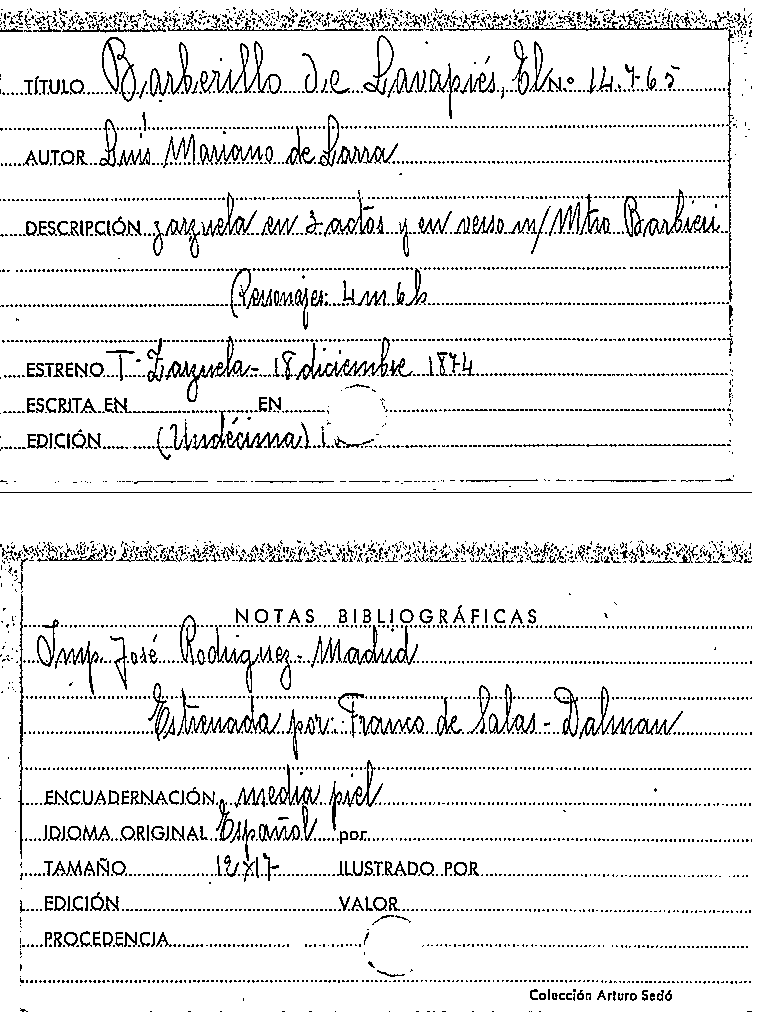 TÍTULO Barberillo de Lavapiés, El Nº 14.765
AUTOR Luis Mariano de Larra
DESCRIPCIÓN zarzuela en 3 actos y en verso m/ Mtro Barbieri
Personajes: 4 m 6 h
ESTRENO T. Zarzuela - 18 diciembre 1874
ESCRITA EN EN
EDICIÓN (Undécima)
NOTAS BIBLIOGRÁFICAS
Imp. José Rodriguez - Madrid
Estrenada por: Franco de Salas - Dalmau
ENCUADERNACIÓN media piel
IDIOMA ORIGINAL Español por
TAMAÑO 12 x 17 ILUSTRADO POR
EDICIÓN VALOR
PROCEDENCIA
Colección Arturo Sedó